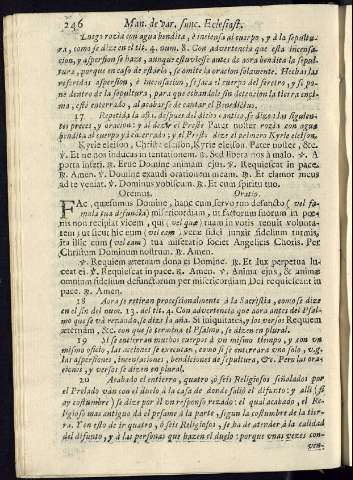 246 Man. de var. func. Eclesiast.
Luego rozia con agua bendita, è inciensa al cuerpo, y à la sepultu-
ra, como se dize en el tit. 4. num. 8. Con advertencia que esta incensa-
cion, y aspersion se haze, aunque estuviesse antes de aora bendita la sepul-
tura, porque en caso de estarlo, se omite la oracion solamente. Hechas las
referidas aspersion, è incensacion, se saca el cuerpo del feretro, y se po-
ne dentro de la sepultura, para que echandole sin detencion la tierra enci-
ma, estè enterrado, al acabarse de cantar el Benedictus.
17 Repetida la año, despues del dicho cantico, se dizen las siguien-
tes preces, y oracion: y al dezir el Preste Pater noster rozia con agua
bendita al cuerpo yà enterrado; y el Preste dize el primero Kyrie eleison.
Kyrie eleison, Christe eleison, Kyrie eleison. Pater noster, &c.
℣. Et ne nos inducas in tentationem. ℟. Sed libera nos à malo. ℣. A
porta inferi. ℟. Erue Domine animam ejus. ℣. Requiescat in pace.
℟. Amen. ℣. Domine exaudi orationem meam. ℟. Et clamor meus
ad te veniat. ℣. Dominus vobiscum. ℟. Et cum spiritu tuo.
Oremus. Oratio.
FAc, quæsumus Domine, hanc cum servo tuo defuncto (vel fa-
mula tua defuncta) misericordiam, ut factorum suorum in pœ-
nis non recipiat vicem, qui (vel quæ) tuam in votis tenuit volunta-
tem; ut sicut hic eum (vel eam) vera fides junxit fidelium turmis,
ita illic eum (vel eam) tua miseratio societ Angelicis Choris. Per
Christum Dominum nostrum. ℟. Amen.
℣. Requiem æternam dona ei Domine. ℟. Et lux perpetua lu-
ceat ei. ℣. Requiescat in pace. ℟. Amen. ℣. Anima ejus, & animæ
omnium fidelium defunctorum per misericordiam Dei requiescant in
pace. ℟. Amen.
18 Aora se retiran processionalmente à la Sacristia, como se dize
en el fin del num. 13. del tit. 4. Con advertencia que aora antes del Psal-
mo que se và rezando, se dize la año. Si iniquitates, y los versos Requiem
æternam, &c. con que se termina el Psalmo, se dizen en plural.
19 Si se entierran muchos cuerpos à un mismo tiempo, y con un
mismo oficio, las acciones se executan, como si se enterrara uno solo, v.g.
las aspersiones, incensaciones, bendiciones de sepultura, &c. Pero las ora-
ciones, y versos se dizen en plural.
20 Acabado el entierro, quatro, ò seis Religiosos señalados por
el Prelado vàn con el duelo à la casa de donde saliò el difunto: y allì (si
ay costumbre) se dize por èl un responso rezado: el qual acabado, el Re-
ligioso mas antiguo dà el pesame à la parte, segun la costumbre de la tier-
ra. Y en esto de ir quatro, ò seis Religiosos, se ha de atender à la calidad
del difunto, y à las personas que hazen el duelo: porque unas vezes con-
ven-